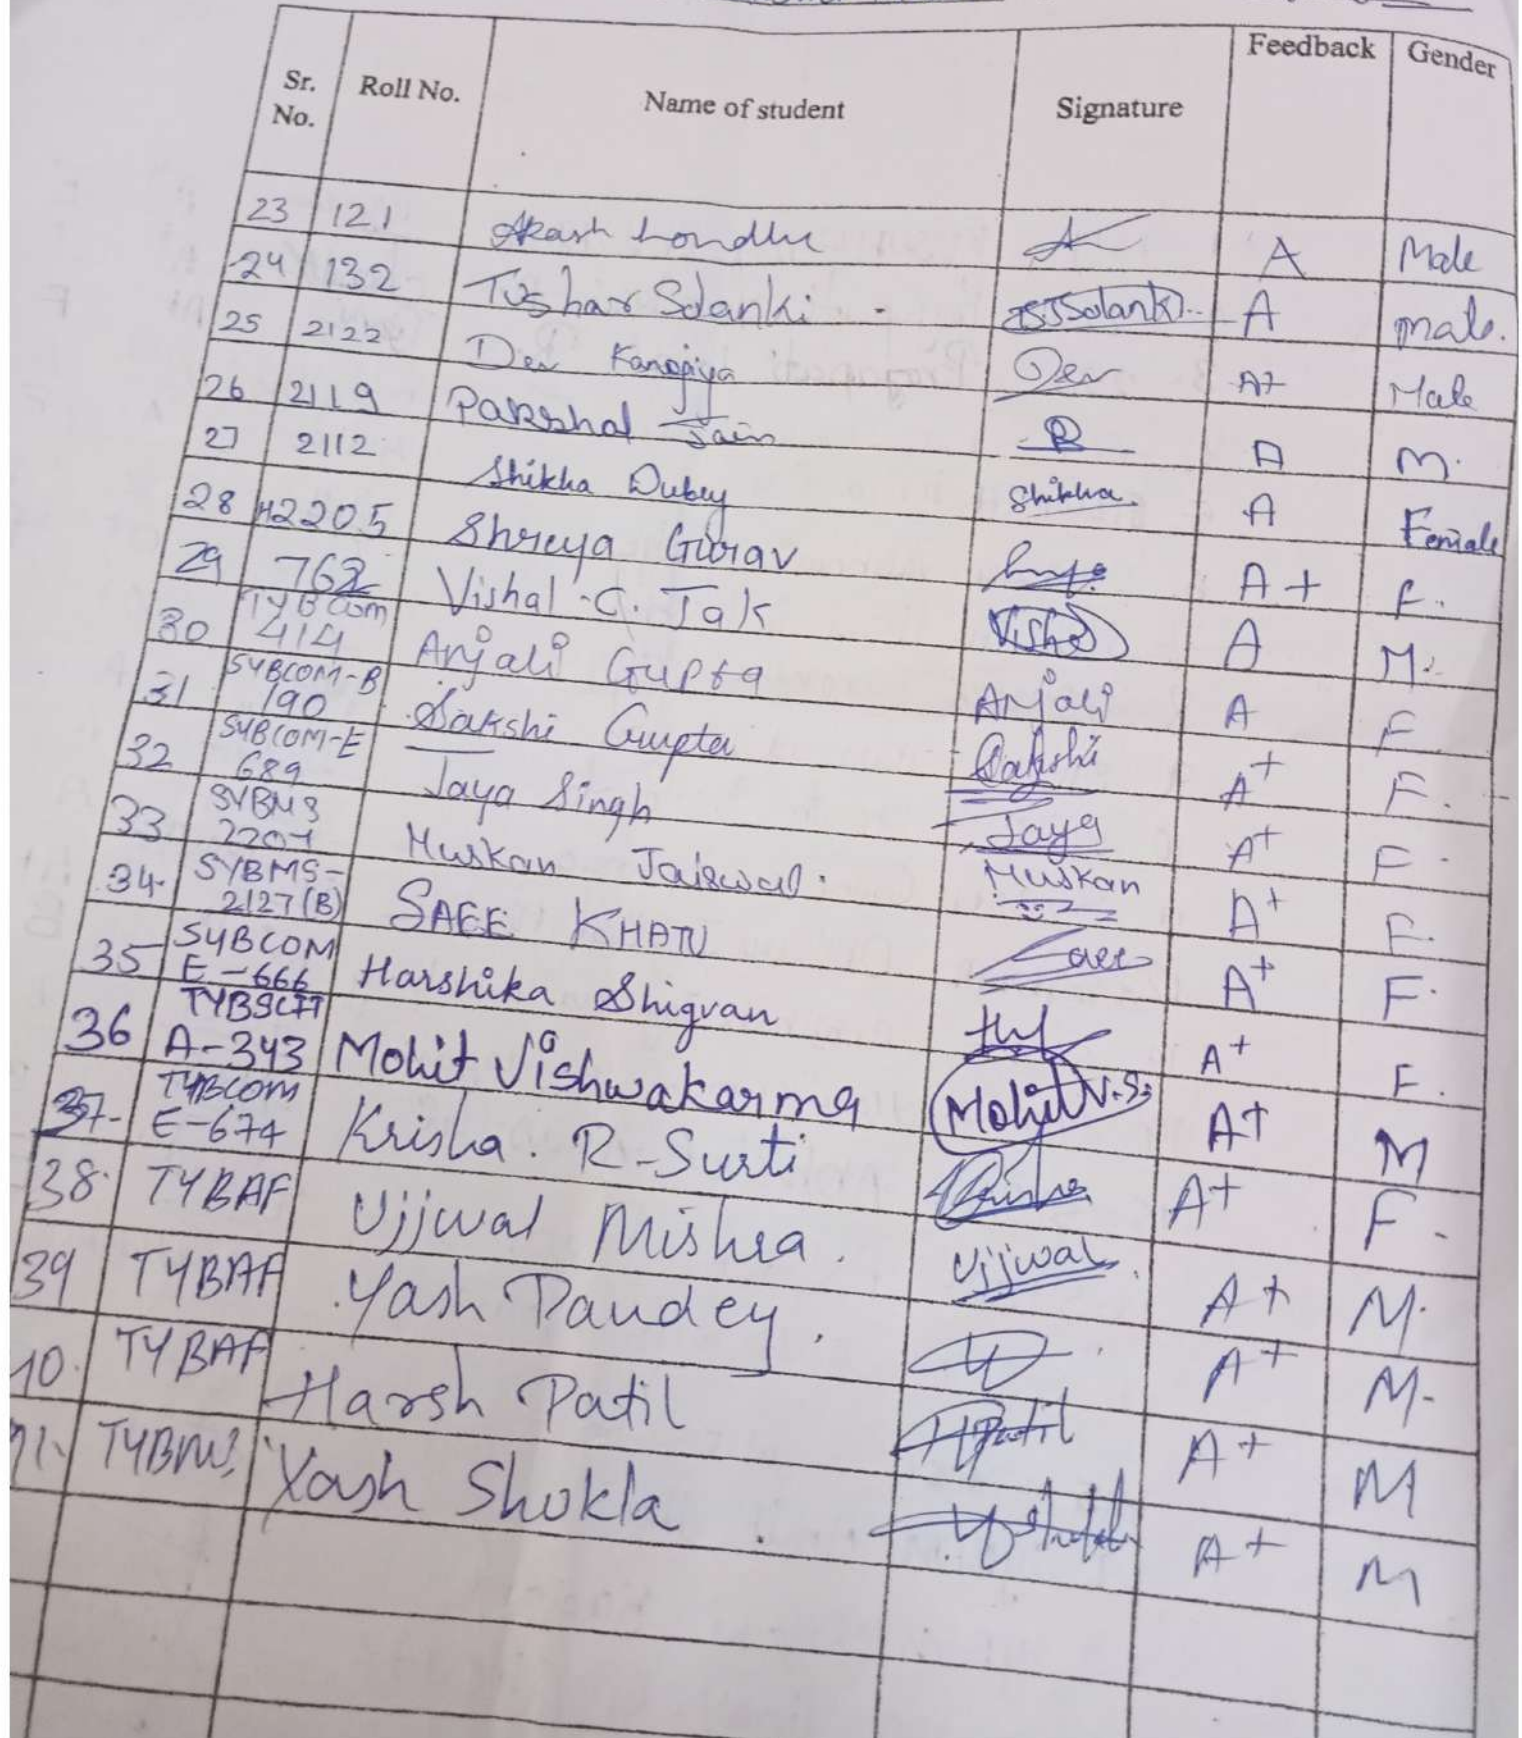 Sr. No. Roll No. Name of student Signature Feedback Gender
23 121 Akash Londhe A Male
24 132 Tushar Solanki TSJSolanki A male.
25 2122 Dev Kanojiya Dev A+ Male
26 2119 Parshal Jain A M.
27 2112 Shikha Dubey Shikha. A Female
28 H2205 Shreya Gurav A+ F.
29 762 Vishal C. Jak Vishal A M.
30 TYBCom 414 Anjali Gupta Anjali A F
31 SYBCOM-B 190 Sakshi Gupta Sakshi A+ F.
32 SYBCOM-E 689 Jaya Singh Jaya A+ F
33 SYBMS 2207 Muskan Jaiswal. Muskan A+ F.
34. SYBMS-2127(B) SAEE KHATU Saee A+ F.
35 SYBCOM E-666 Harshika Shigvan A+ F.
36 TYBSCIT A-343 Mohit Vishwakarma Mohit V.S. A+ M
37. TYBCOM E-674 Krisha. R-Surti Krisha A+ F-
38. TYBAF Ujjwal Mishra. Ujjwal. A+ M.
39 TYBAF Yash Pandey. A+ M-
10. TYBAF Harsh Patil HPatil A+ M
11. TYBMS Yash Shukla A+ M